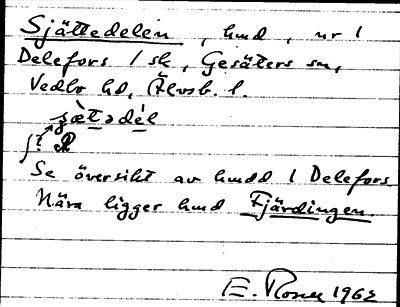 Sjättedelen, hmd, nr 1
Delefors /sk, Gesäters sn,
Vedbo hd, Älvsb. l.
sæ̀t ə dé l
ʃ?
Se översikt av hmdd 1 Delefors
Nära ligger hmd Fjärdingen.
E. Rosell 1962